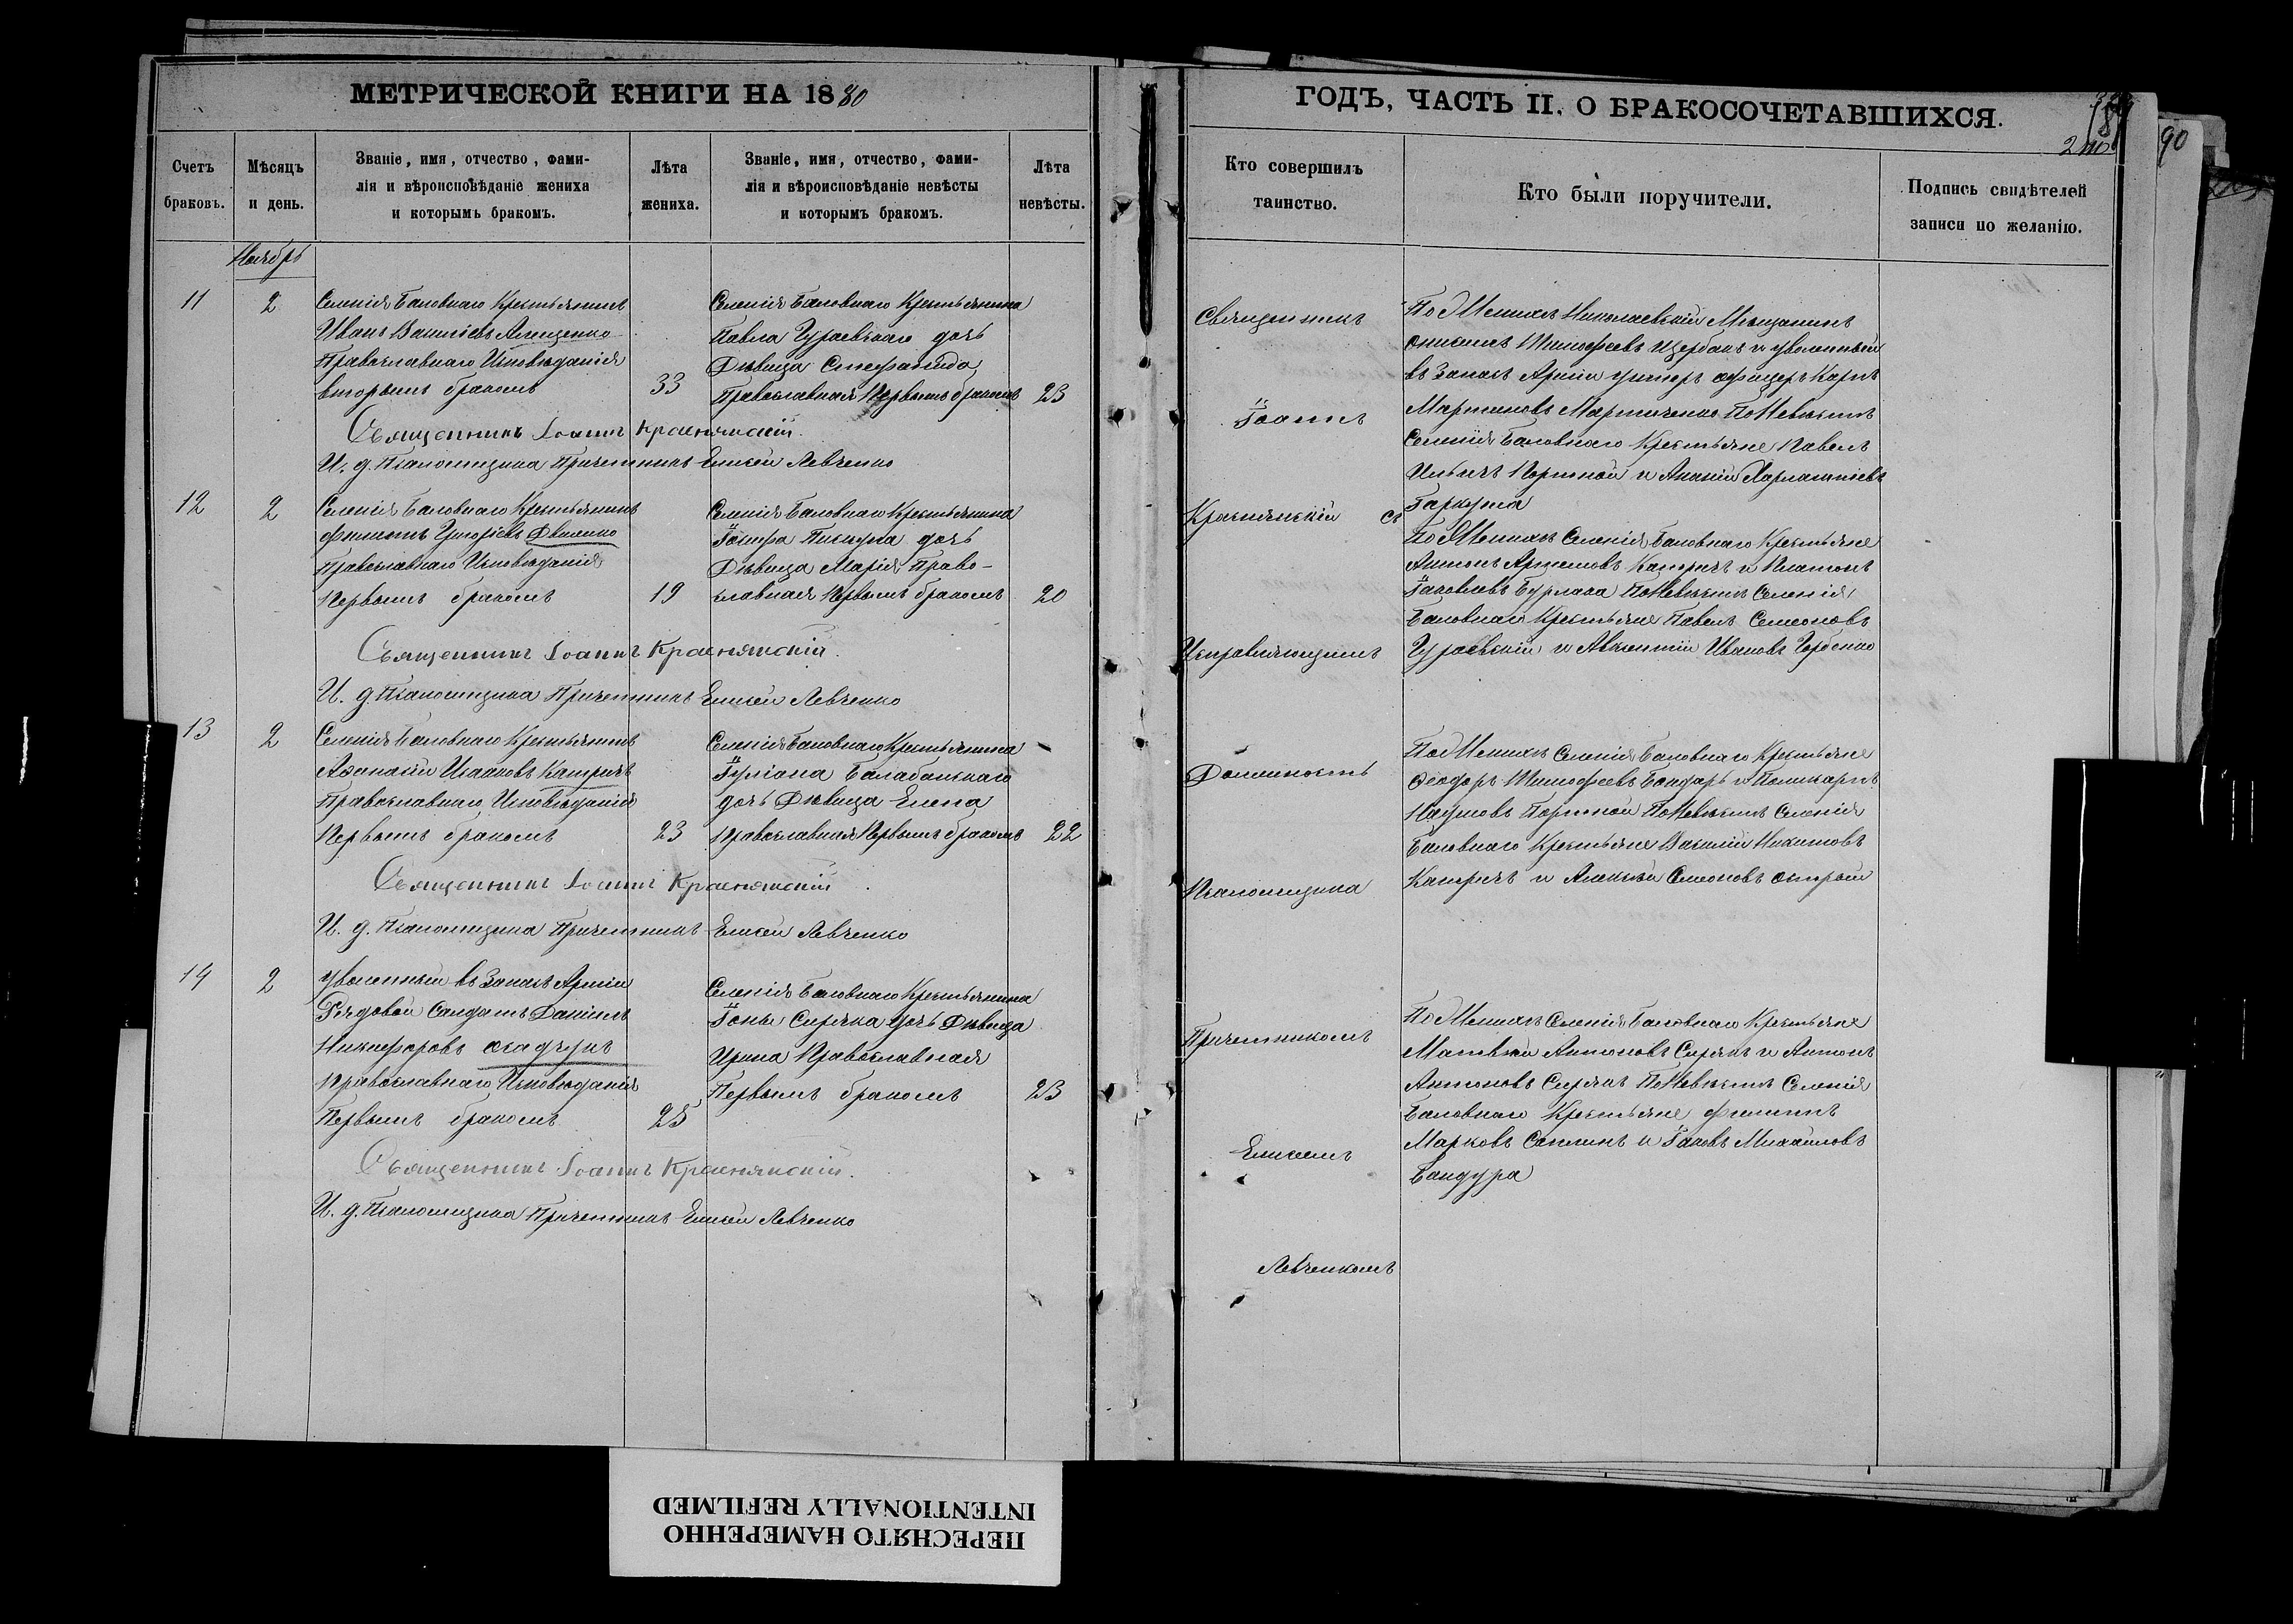 МЕТРИЧЕСКОЙ КНИГИ НА 1880
Счетъ браковъ.
Мѣсяцъ и день.
Званіе, имя, отчество, фами-
лія и вѣроисповѣданіе жениха
и которымъ бракомъ.
Лѣта жениха.
Званіе, имя, отчество, фами-
лія и вѣроисповѣданіе невѣсты
и которымъ бракомъ.
Лѣта невѣсты.
Ноябрь
11
2
Селенія Баловнаго Крестьянинъ
Иванъ Василіевъ
Православнаго Исповѣданія
вторымъ бракомъ
33
Селенія Баловнаго Крестьянина
Павла Чураевскаго дочь
Дѣвица Стефанида
Православная Первымъ бракомъ
23
Священникъ Іоаннъ Краснянскій
И. д. Псаломщика Причетникъ Елисей Левченко
12
2
Селенія Баловнаго Крестьянинъ
Филиппъ
Православнаго Исповѣданія
Первымъ бракомъ
19
Селенія Баловнаго Крестьянина
дочь
Дѣвица Марія Право-
славная Первымъ бракомъ
20
Священникъ Іоаннъ Краснянскій.
И. д. Псаломщика Причетникъ Елисей Левченко
13
2
Селенія Баловнаго Крестьянинъ
Аѳанасій Исааковъ Катричъ
Православнаго Исповѣданія
Первымъ бракомъ
23
Селенія Баловнаго Крестьянина
Іуліана Балабанскаго
дочь Дѣвица Елена
Православная Первымъ бракомъ
22
Священникъ Іоаннъ Краснянскій
И. д. Псаломщика Причетникъ Елисей Левченко
14
2
уволенный въ Запасъ Арміи
Рядовой Солдатъ Даніилъ
Никифоровъ
Православнаго Исповѣданія
Первымъ бракомъ
25
Селенія Баловнаго Крестьянина
Іоны Сиряка дочь Дѣвица
Ирина Православная
Первымъ бракомъ
23
Священникъ Іоаннъ Краснянскій.
И. д. Псаломщика Причетникъ Елисей Левченко
ГОДЪ, ЧАСТЬ II, О БРАКОСОЧЕТАВШИХСЯ.
90
Кто совершилъ таинство.
Кто были поручители.
Подпись свидѣтелей записи по желанію.
Священникъ
Іоаннъ
Краснянскій съ
Исправляющимъ
Должность
Псаломщика
Причетникомъ
Елисеемъ
Левченкомъ
По Женихѣ Николаевскій Мѣщанинъ
Тимофеевъ Щербакъ и уволенный
въ Запасъ Арміи унтеръ офицеръ Карпъ
Мартиновъ Мартиченко По Невѣстѣ
Селенія Баловнаго Крестьяне Павелъ
Ильичъ Портной и Ананій Харлампіевъ
Гаркуша
По Женихѣ Селенія Баловнаго Крестьяне
Антонъ Артемовъ Катричъ и Платонъ
Іаковлевъ Бурлака По Невѣстѣ Селенія
Баловнаго Крестьяне Павелъ Семеоновъ
Чураевскій и Авксентій Ивановъ
По Женихѣ Селенія Баловнаго Крестьяне
Ѳеодоръ Тимофеевъ Бондарь и Поликарпъ
Наумовъ Портной По Невѣстѣ Селенія
Баловнаго Крестьяне Василій Никитовъ
Катричъ и Алексѣй Семеоновъ
По Женихѣ Селенія Баловнаго Крестьяне
Матвѣй Антоновъ Сирякъ и Антонъ
Антоновъ Сирякъ По Невѣстѣ Селенія
Баловнаго Крестьяне Филиппъ
Марковъ и Іаковъ Михайловъ
Бандура
ПЕРЕСНЯТО НАМЕРЕННО
INTENTIONALLY REFILMED